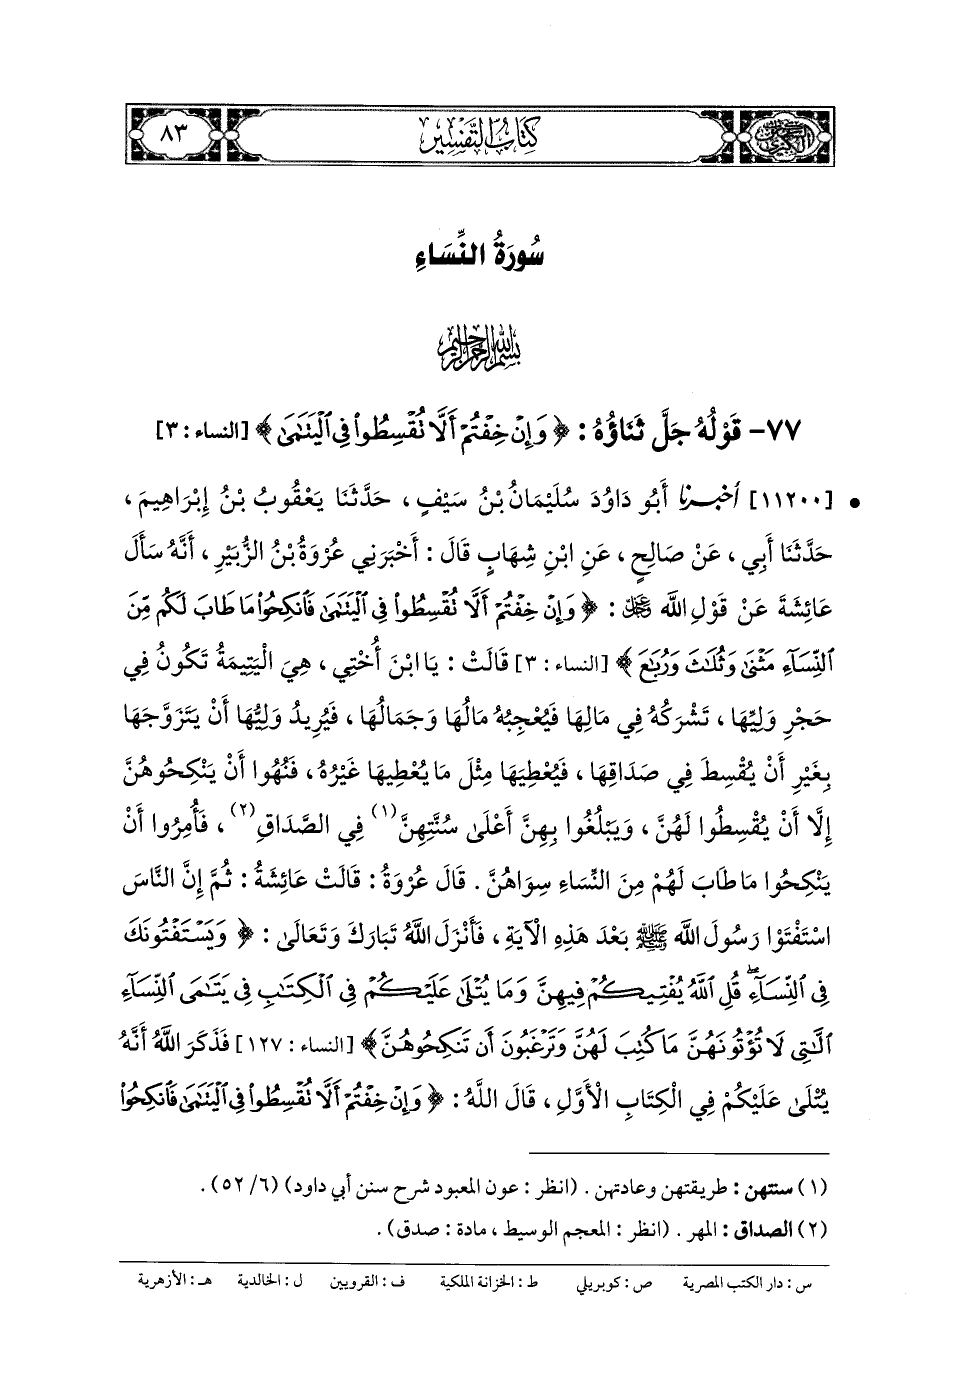 كتاب التفسير ٨٣
سُورَةُ النِّسَاءِ
بسم الله الرحمن الرحيم
٧٧- قَوْلُهُ جَلَّ ثَنَاؤُهُ : ﴿ وَإِنْ خِفْتُمْ أَلَّا تُقْسِطُوا۟ فِى ٱلْيَتَٰمَىٰ ﴾ [النساء : ٣]
• [١١٢٠٠] أخبرنا أَبُو دَاوُدَ سُلَيْمَانُ بْنُ سَيْفٍ ، حَدَّثَنَا يَعْقُوبُ بْنُ إِبْرَاهِيمَ ،
حَدَّثَنَا أَبِي ، عَنْ صَالِحٍ ، عَنِ ابْنِ شِهَابٍ قَالَ : أَخْبَرَنِي عُرْوَةُ بْنُ الزُّبَيْرِ ، أَنَّهُ سَأَلَ
عَائِشَةَ عَنْ قَوْلِ اللَّه ﷿ : ﴿ وَإِنْ خِفْتُمْ أَلَّا تُقْسِطُوا۟ فِى ٱلْيَتَٰمَىٰ فَٱنكِحُوا۟ مَا طَابَ لَكُم مِّنَ
ٱلنِّسَآءِ مَثْنَىٰ وَثُلَٰثَ وَرُبَٰعَ ﴾ [النساء : ٣] قَالَتْ : يَا ابْنَ أُخْتِي ، هِيَ الْيَتِيمَةُ تَكُونُ فِي
حَجْرِ وَلِيِّهَا ، تَشْرَكُهُ فِي مَالِهَا فَيُعْجِبُهُ مَالُهَا وَجَمَالُهَا ، فَيُرِيدُ وَلِيُّهَا أَنْ يَتَزَوَّجَهَا
بِغَيْرِ أَنْ يُقْسِطَ فِي صَدَاقِهَا ، فَيُعْطِيَهَا مِثْلَ مَا يُعْطِيهَا غَيْرُهُ ، فَنُهُوا أَنْ يَنْكِحُوهُنَّ
إِلَّا أَنْ يُقْسِطُوا لَهُنَّ ، وَيَبْلُغُوا بِهِنَّ أَعْلَىٰ سُنَّتِهِنَّ(١) فِي الصَّدَاقِ(٢) ، فَأُمِرُوا أَنْ
يَنْكِحُوا مَا طَابَ لَهُمْ مِنَ النِّسَاءِ سِوَاهُنَّ . قَالَ عُرْوَةُ : قَالَتْ عَائِشَةُ : ثُمَّ إِنَّ النَّاسَ
اسْتَفْتَوْا رَسُولَ اللَّه ﷺ بَعْدَ هَذِهِ الْآيَةِ ، فَأَنْزَلَ اللَّهُ تَبَارَكَ وَتَعَالَىٰ : ﴿ وَيَسْتَفْتُونَكَ
فِى ٱلنِّسَآءِ ۖ قُلِ ٱللَّهُ يُفْتِيكُمْ فِيهِنَّ وَمَا يُتْلَىٰ عَلَيْكُمْ فِى ٱلْكِتَٰبِ فِى يَتَٰمَى ٱلنِّسَآءِ
ٱلَّٰتِى لَا تُؤْتُونَهُنَّ مَا كُتِبَ لَهُنَّ وَتَرْغَبُونَ أَن تَنكِحُوهُنَّ ﴾ [النساء : ١٢٧] فَذَكَرَ اللَّهُ أَنَّهُ
يُتْلَىٰ عَلَيْكُمْ فِي الْكِتَابِ الْأَوَّلِ ، قَالَ اللَّهُ : ﴿ وَإِنْ خِفْتُمْ أَلَّا تُقْسِطُوا۟ فِى ٱلْيَتَٰمَىٰ فَٱنكِحُوا۟
(١) سنتهن : طريقتهن وعادتهن . (انظر : عون المعبود شرح سنن أبي داود) (٦/ ٥٢) .
(٢) الصداق : المهر . (انظر : المعجم الوسيط ، مادة : صدق) .
س : دار الكتب المصرية ص : كوبريلي ط : الخزانة الملكية ف : القرويين ل : الخالدية هـ : الأزهرية